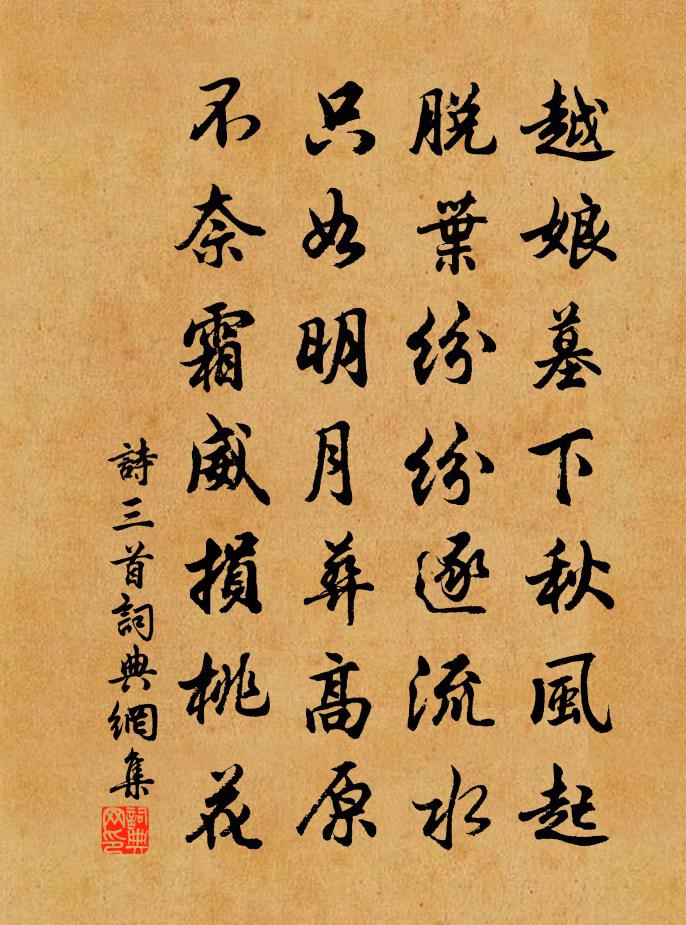 越娘墓下秋風起
脫葉紛紛逐流水
只如明月葬高原
不奈霜威損桃花
詩三首詞典網集
詞典網印